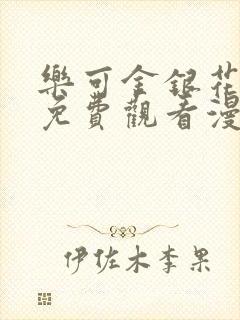 樂可金銀花
免費觀看漫
伊佐木李果